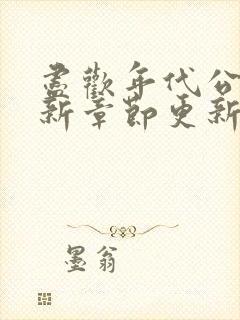 盡歡年代公
新章節更新
墨翁